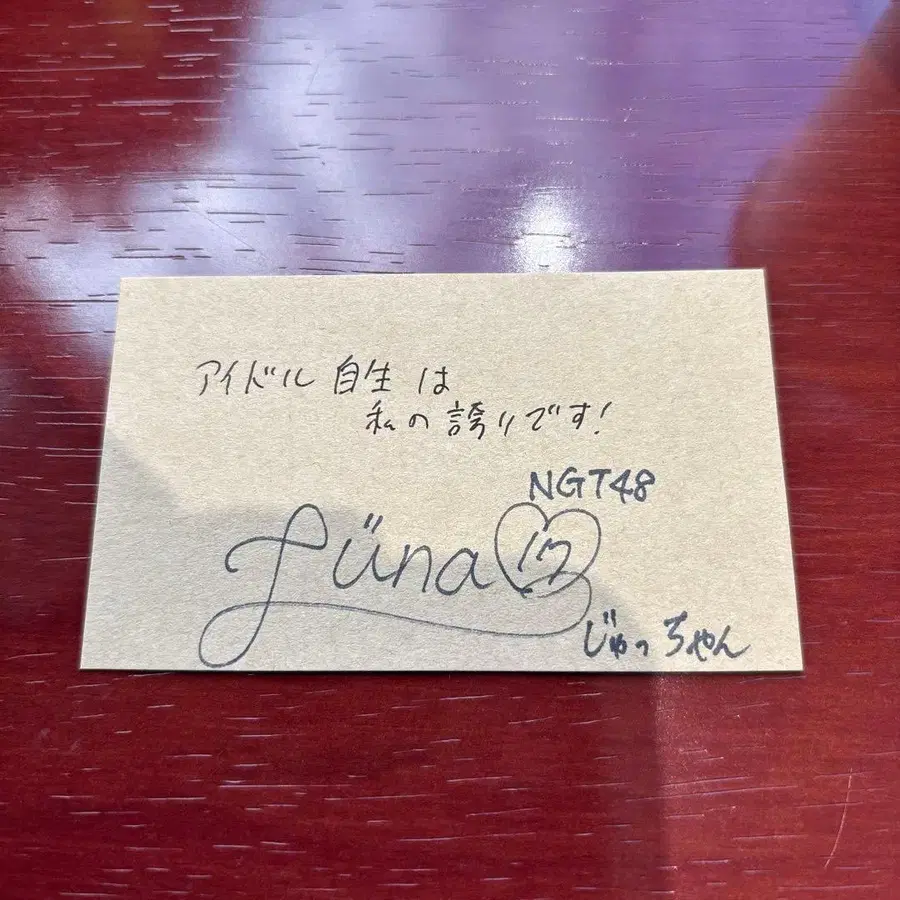 アイドル自生は
私の誇りです!
NGT48
Jüna 17
じゅっちゃん